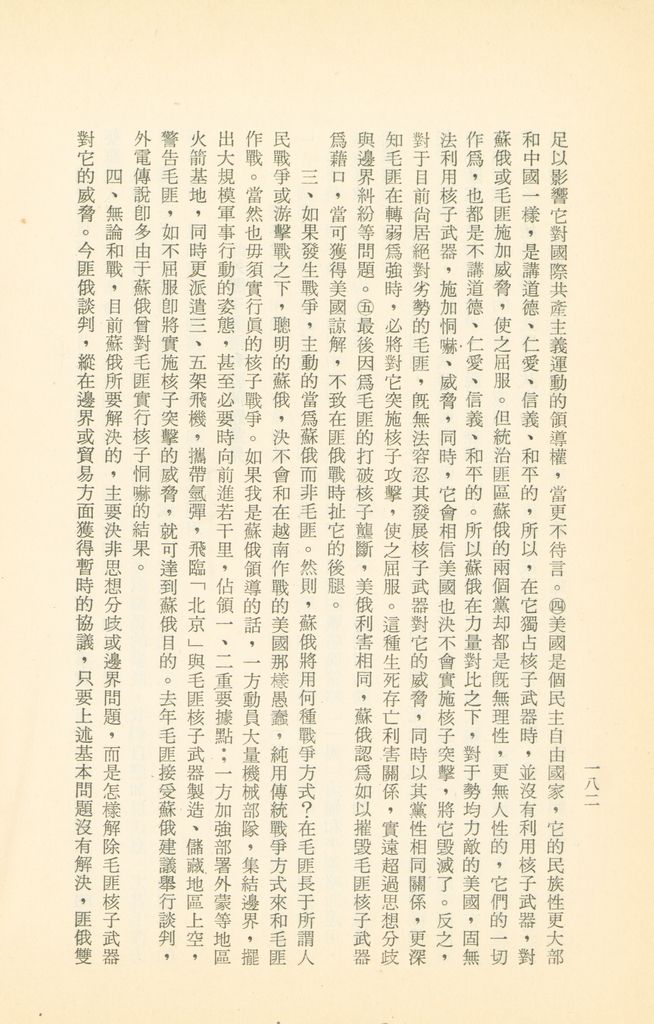 一八二
足以影響它對國際共產主義運動的領導權，當更不待言。㈣美國是個民主自由國家，它的民族性更大部
和中國一樣，是講道德、仁愛、信義、和平的，所以，在它獨占核子武器時，並沒有利用核子武器，對
蘇俄或毛匪施加威脅，使之屈服。但統治匪區蘇俄的兩個黨却都是旣無理性，更無人性的，它們的一切
作爲，也都是不講道德、仁愛、信義、和平的。所以蘇俄在力量對比之下，對于勢均力敵的美國，固無
法利用核子武器，施加恫嚇、威脅，同時，它會相信美國也決不會實施核子突擊，將它毀滅了。反之，
對于目前尙居絕對劣勢的毛匪，旣無法容忍其發展核子武器對它的威脅，同時以其黨性相同關係，更深
知毛匪在轉弱爲強時，必將對它突施核子攻擊，使之屈服。這種生死存亡利害關係，實遠超過思想分歧
與邊界糾紛等問題。㈤最後因爲毛匪的打破核子壟斷，美俄利害相同，蘇俄認爲如以摧毀毛匪核子武器
爲藉口，當可獲得美國諒解，不致在匪俄戰時扯它的後腿。
三、如果發生戰爭，主動的當爲蘇俄而非毛匪。然則，蘇俄將用何種戰爭方式？在毛匪長于所謂人
民戰爭或游擊戰之下，聰明的蘇俄，決不會和在越南作戰的美國那樣愚蠢，純用傳統戰爭方式來和毛匪
作戰。當然也毋須實行眞的核子戰爭。如果我是蘇俄領導的話，一方動員大量機械部隊，集結邊界，擺
出大規模軍事行動的姿態，甚至必要時向前進若干里，佔領一、二重要據點；一方加強部署外蒙等地區
火箭基地，同時更派遣三、五架飛機，攜帶氫彈，飛臨「北京」與毛匪核子武器製造、儲藏地區上空，
警告毛匪，如不屈服卽將實施核子突擊的威脅，就可達到蘇俄目的。去年毛匪接受蘇俄建議舉行談判，
外電傳說卽多由于蘇俄曾對毛匪實行核子恫嚇的結果。
四、無論和戰，目前蘇俄所要解決的，主要決非思想分歧或邊界問題，而是怎樣解除毛匪核子武器
對它的威脅。今匪俄談判，縱在邊界或貿易方面獲得暫時的協議，只要上述基本問題沒有解決，匪俄雙